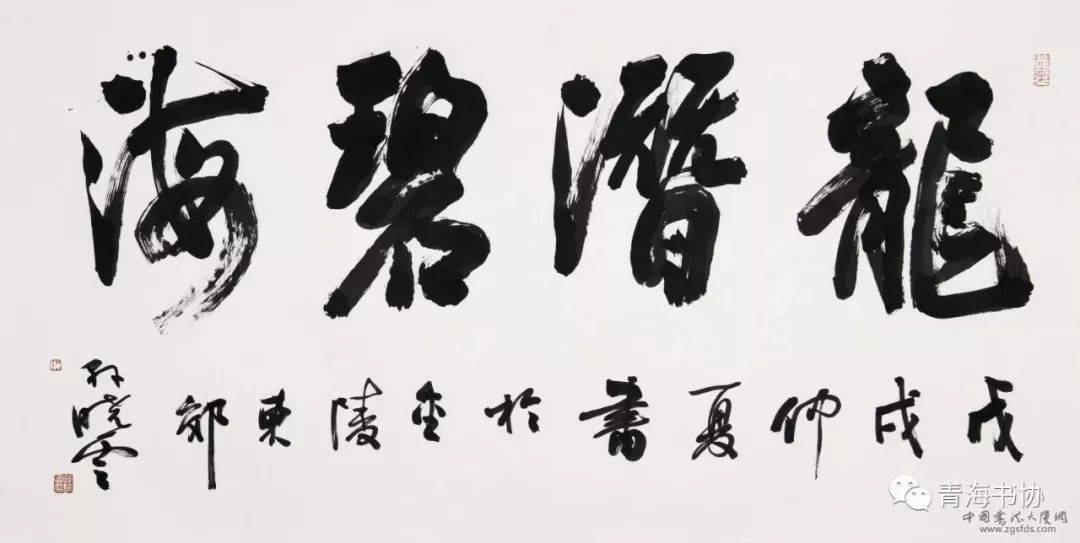 龍潛碧海
戊戌仲夏書於金陵東郊
孙晓云
青海书协
中国书法大厦网
www.zgsfds.com